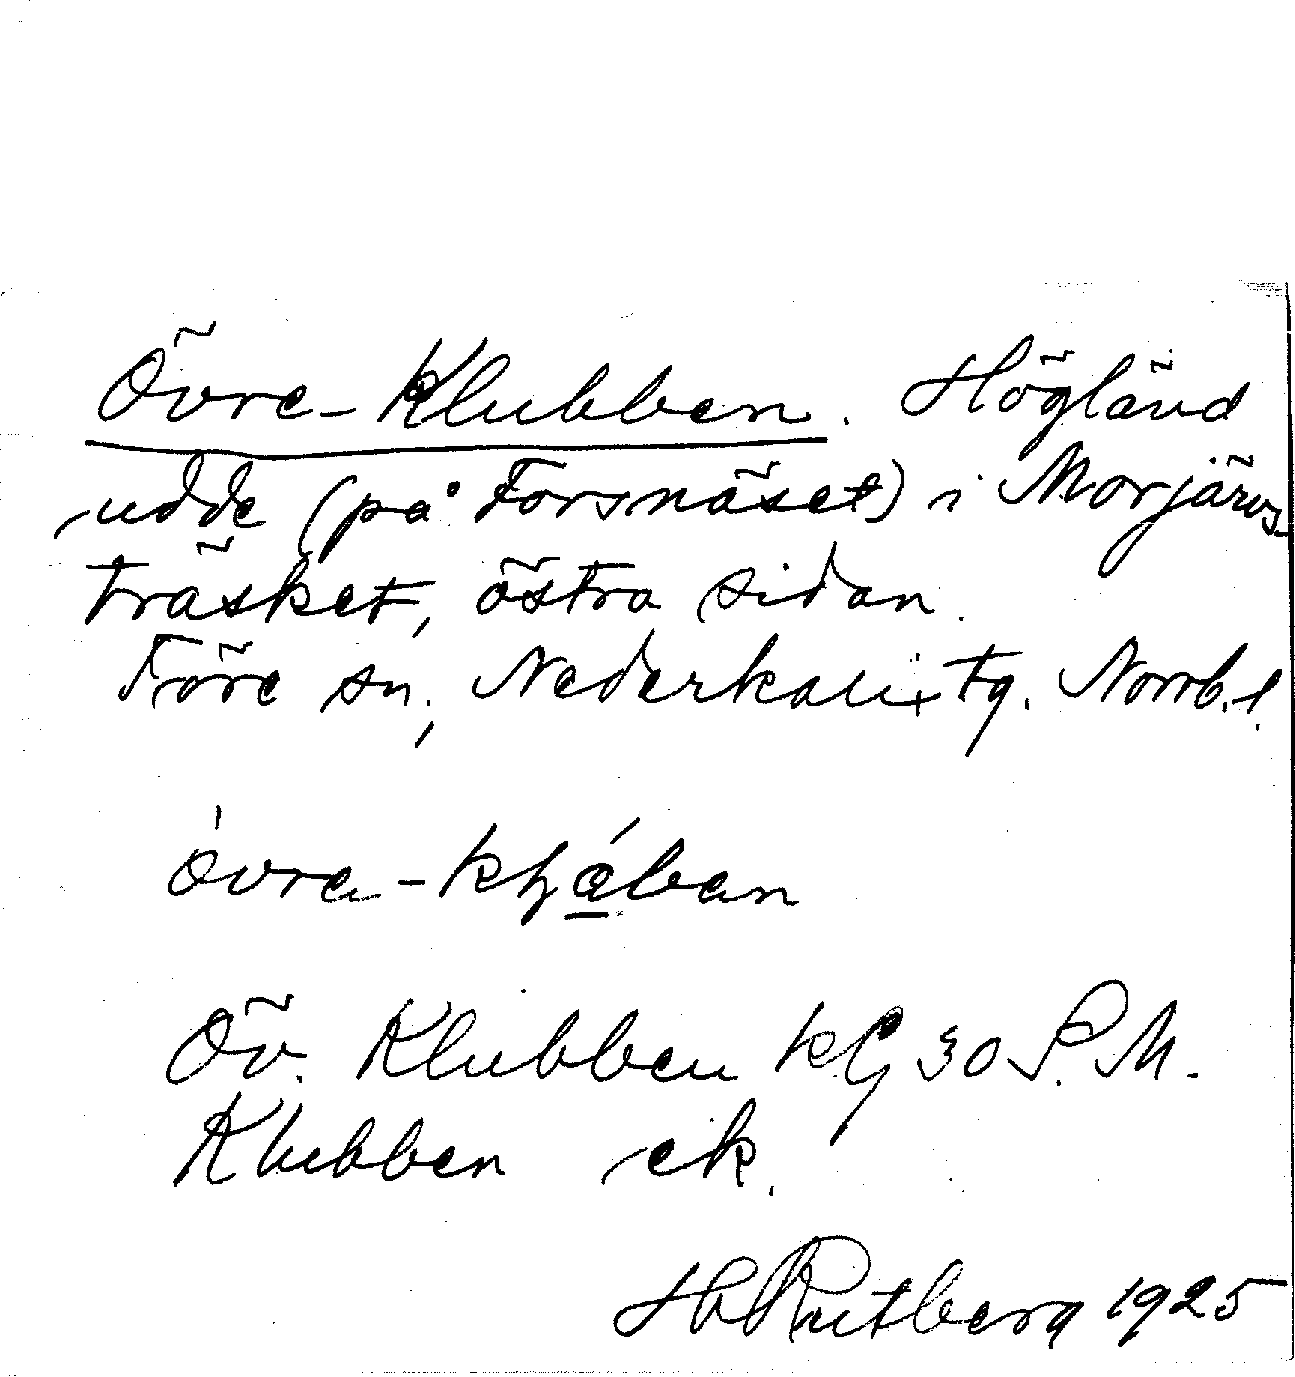 Övre-Klubben. Högländ
udde (på Forsnäset) i Morjärvs
träsket, östra sidan.
Töre sn, Nederkalix tg. Norrb. l.
Öv. Klubben 30 S. M.
Klubben ek.
H Rutberg 1925